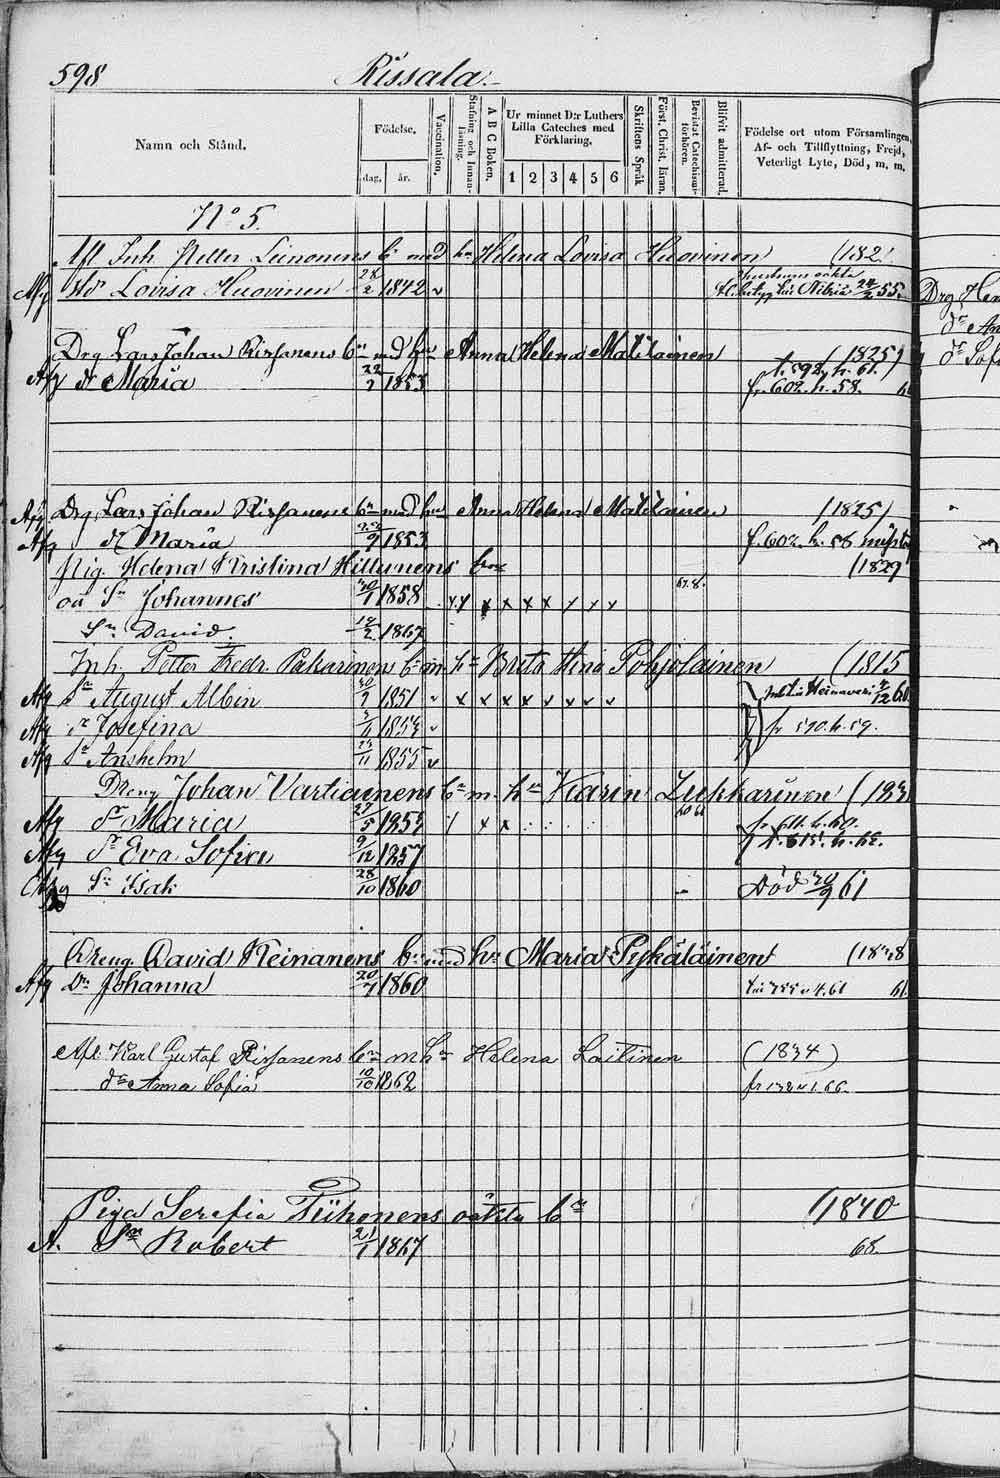 598 Rissala
Namn och Stånd. Födelse. dag. år. Vaccination. Stafning och Innanläsning. A B C Boken. Ur minnet D:r Luthers Lilla Cateches med Förklaring. 1 2 3 4 5 6 Skriftens Språk Först. Christ. läran. Bevistat Catechismiförhören. Blifvit admitterad. Födelse ort utom Församlingen, Af- och Tillflyttning, Frejd, Veterligt Lyte, Död, m. m.
No 5.
Inh. Petter Leinonens bn med hu Helena Lovisa Huovinen (182
Afg Lovisa Huovinen 28/2 1842 v Nilsiä 55.
Drg Lars Johan Rissanens bn med hu Anna Helena Matilainen (1825)
Afg dr Maria 22/9 1853 t. 592. h. 61.
fr. 602. h. 58.
Afg Drg Lars Johan Rissanens bn med hu Anna Helena Matilainen (1825)
Afg dr Maria 22/9 1853 f. 602. h. 58
Pig. Helena Kristina Hillunens (1829
oä Sn Johannes 30/1 1858 x x x x x x x x x 67. 8.
Sn David. 12/2 1867
Inh. Petter Fredr. Pakarinens bn m. hu Brita Stina Pohjolainen (1815
Afg Sn August Albin 30/9 1851 v x x x x x x x x Heinävesi 60
Afg dr Josefina 1853 v fr 590. h. 59.
Afg Sn Anshelm 24/11 1855 v
Dreng Johan Vartiainens bn m. hu Karin Lukkarinen (18
Afg Dr Maria 27/5 1853 / x x 60 61 fr 611. h. 60.
Afg Dr Eva Sofia 9/12 1857 t. 615. h. 62.
Afg Sn Isak 28/10 1860 Död 20/9 61
Dreng David Keinänens bn med hu Maria Pykäläinen (1828
Afg Dr Johanna 20/7 1860 61.
Karl Gustaf Rissanens bn m hu Helena Laitinen (1834)
dr Anna Sofia 10/10 1862 66.
Piga Serafia Tiihonens oäkta bn (1840
A. Sn Robert 21/1 1867 68.
Drg Hen
dr An
dr Sofi